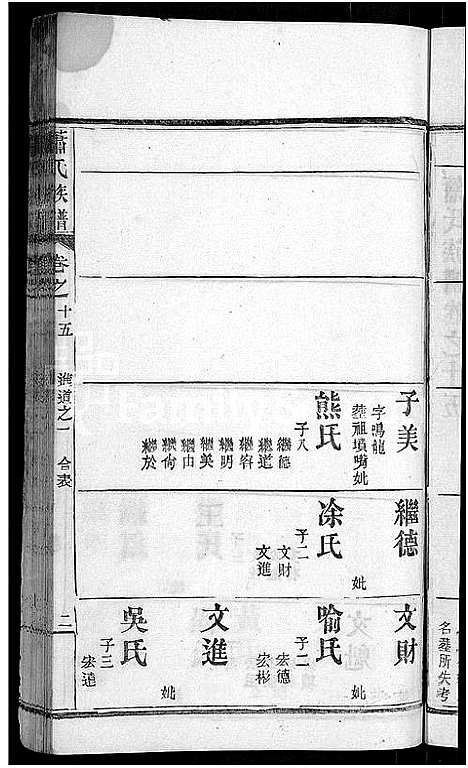 名墓所失考
子美
字鳴龍
葬祖塤嘴妣
熊氏
子八
繼德
繼道
繼容
繼明
繼美
繼由
繼尚
繼於
繼德
妣
凃氏
子二
文財
文進
文財
妣
喻氏
子二
宏德
宏彬
文進
妣
吳氏
子三
宏達
蕭氏族譜
卷之十五
進道之一
合表
二